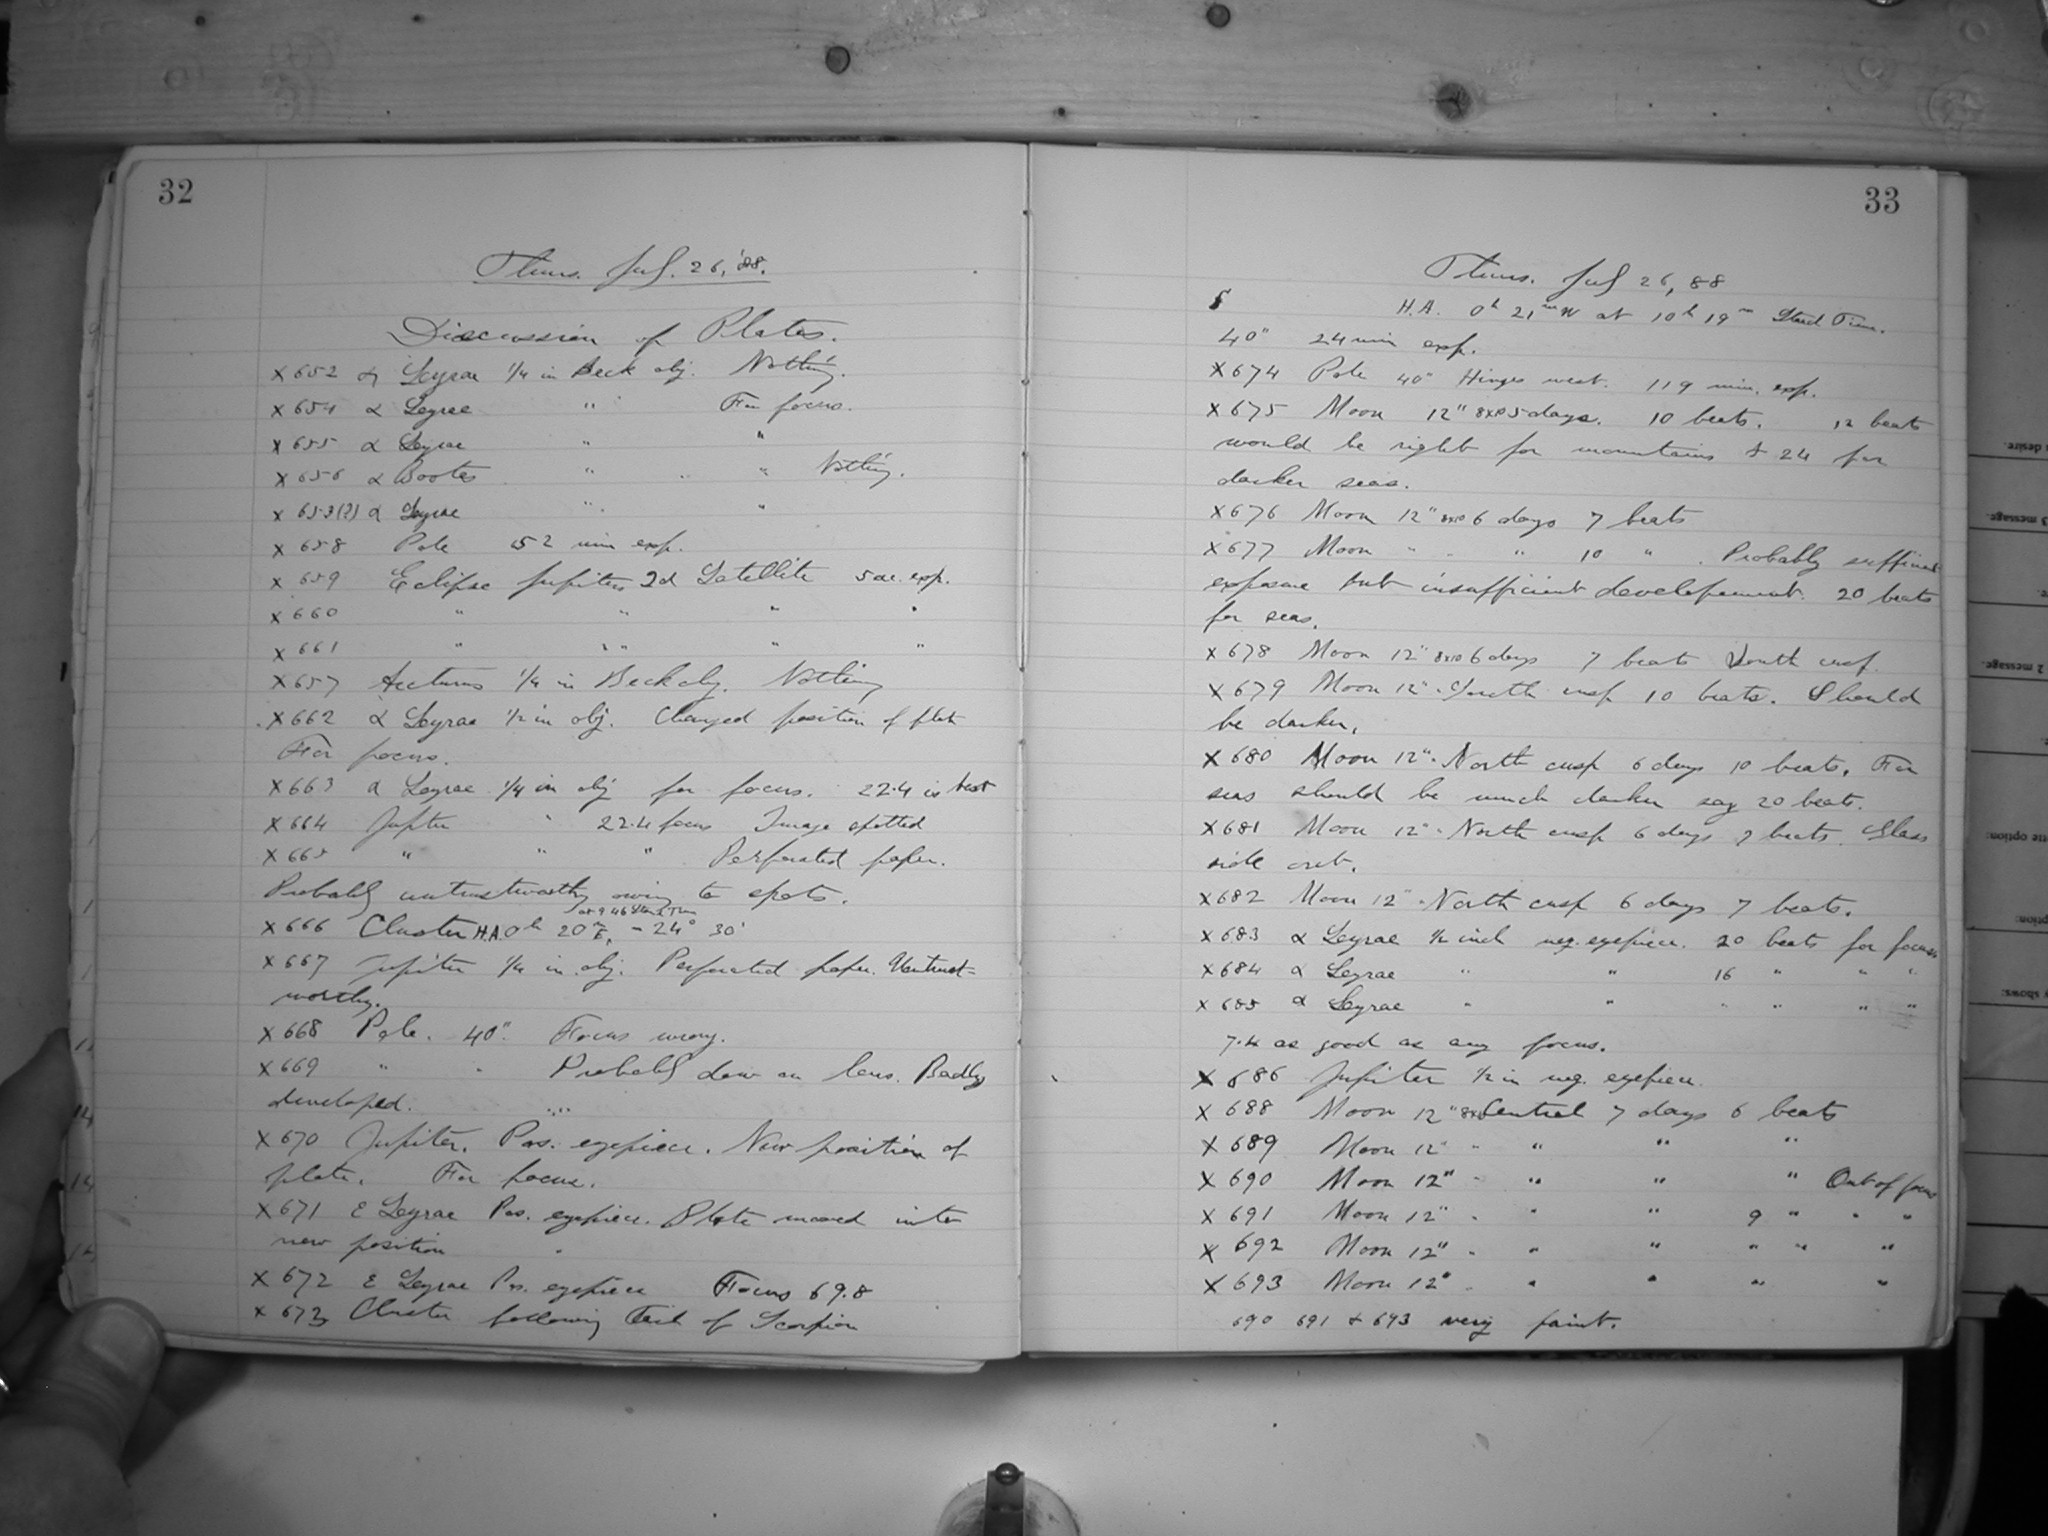 32
Thurs. July. 26, '88.
Discussion of Plates.
X 652 α Leyrae 1/4 in Beck obj. Nothing.
X 654 α Leyrae " For focus.
X 655 α Leyrae " "
X 656 α Bootes " " Nothing.
X 653(2) α Leyrae " "
X 658 Pole 52 min exp.
X 659 Eclipse Jupiters 2d Satellite 5 sec. exp.
X 660 " " " "
X 661 " " " "
X 657 Arcturus 1/4 in Beck obj. Nothing
X 662 α Leyrae 1/2 in obj. Changed position of plate
For focus.
X 663 α Leyrae 1/4 in obj for focus. 22.4 is best
X 664 Jupiter " 22.4 focus Image spotted
X 665 " " " Perforated paper.
Probably untrustworthy owing to spots.
at 9 46 Stand Time
X 666 Cluster H.A. 0h 20m E, - 24° 30'
X 667 Jupiter 1/4 in obj. Perforated paper. Untrust-
worthy.
X 668 Pole. 40". Focus wrong.
X 669 " " Probably dew on lens. Badly
developed.
X 670 Jupiter. Pos. eyepiece. New position of
plate. For focus.
X 671 ε Leyrae Pos. eyepiece. Plate moved into
new position
X 672 ε Leyrae Pos. eyepiece Focus 69.8
X 673 Cluster following Tail of Scorpion
33
Thurs. July 26, 88
H.A. 0h 21m W at 10h 19m Stand Time.
40" 24 min exp.
X 674 Pole 40" Hinges west. 119 min. exp.
X 675 Moon 12" 8x10 5 days. 10 beats. 12 beats
would be right for mountains & 24 for
darker seas.
X 676 Moon 12" 8x10 6 days 7 beats
X 677 Moon " " " 10 " . Probably sufficient
exposure but insufficient developement. 20 beats
for seas.
X 678 Moon 12" 8x10 6 days 7 beats South cusp.
X 679 Moon 12" " South cusp 10 beats. Should
be darker.
X 680 Moon 12" " North cusp 6 days 10 beats. For
seas should be much darker say 20 beats.
X 681 Moon 12" " North cusp 6 days 7 beats. Glass
side out.
X 682 Moon 12" " North cusp 6 days 7 beats.
X 683 α Leyrae 1/2 inch neg. eyepiece. 20 beats for focus
X 684 α Leyrae " " 16 " " "
X 685 α Leyrae " " " " " "
7.4 as good as any focus.
X 686 Jupiter 1/2 in neg. eyepiece.
X 688 Moon 12" 8x10 Central 7 days 6 beats
X 689 Moon 12" " " " "
X 690 Moon 12" " " " " Out of focus
X 691 Moon 12" " " " 9 " " "
X 692 Moon 12" " " " " " "
X 693 Moon 12" " " " " "
690 691 & 693 very faint.